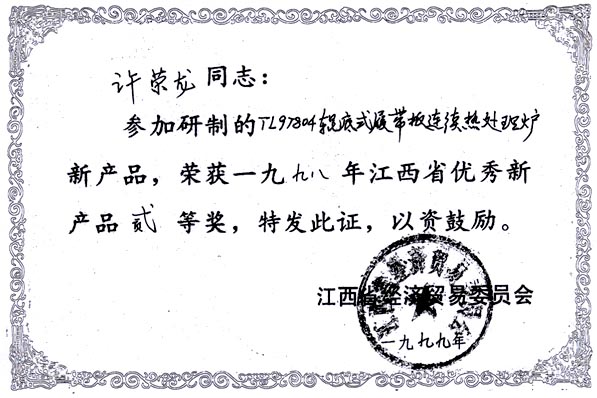 许荣龙同志：
参加研制的TL97804辊底式履带板连续热处理炉
新产品，荣获一九九八年江西省优秀新
产品贰等奖，特发此证，以资鼓励。
江西省经济贸易委员会
一九九九年